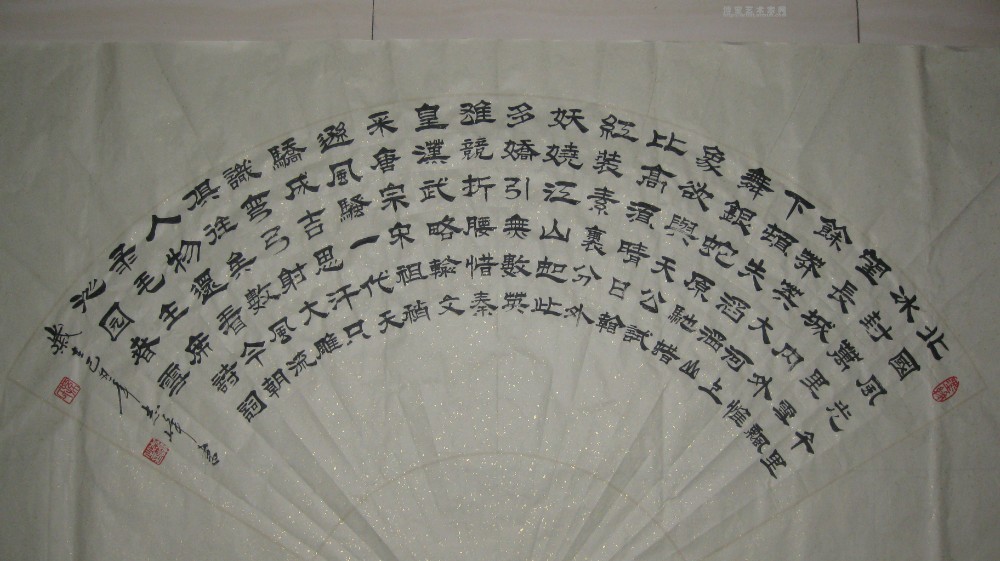 北國風光千里
冰封萬里雪飄
望長城内外惟
餘莽莽大河上
下頓失滔滔山
舞銀蛇原馳蜡
象欲與天公試
比高須晴日看
紅裝素裹分外
妖嬈江山如此
多嬌引無數英
雄競折腰惜秦
皇漢武略輸文
采唐宗宋祖稍
遜風騷一代天
驕成吉思汗只
識彎弓射大雕
俱往矣數風流
人物還看今朝
录毛主席詩詞
沁园春雪
歲
書